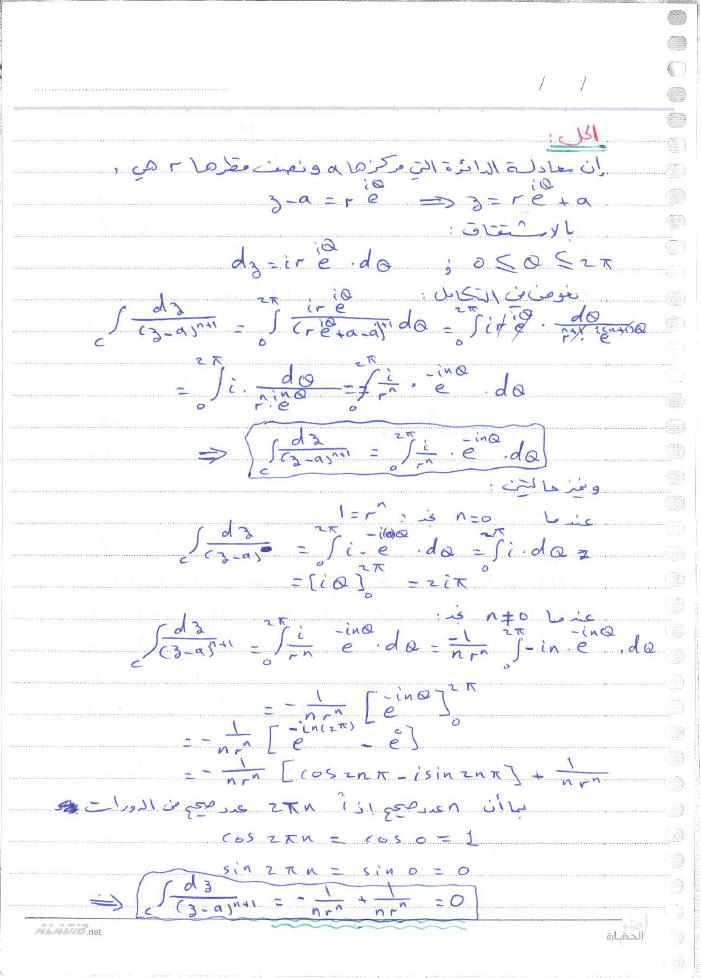 / /
الحل:
إن معادلة الدائرة التي مركزها a ونصف قطرها r هي،
z-a = r e^{iθ} ⟹ z = r e^{iθ} + a
بالاشتقاق:
dz = i r e^{iθ} . dθ ; 0 ≤ θ ≤ 2π
نعوض في التكامل:
∫_c dz/(z-a)^{n+1} = ∫_0^{2π} i r e^{iθ}/(r e^{iθ} + a - a)^{n+1} dθ = ∫_0^{2π} i r e^{iθ} . dθ/(r^{n+1} . e^{i(n+1)θ})
= ∫_0^{2π} i . dθ/(r^n . e^{inθ}) = ∫_0^{2π} i/r^n . e^{-inθ} . dθ
⟹ ∫_c dz/(z-a)^{n+1} = ∫_0^{2π} i/r^n . e^{-inθ} . dθ
ونميز حالتين:
عندما n=0 نجد: 1 = r^n
∫_c dz/(z-a) = ∫_0^{2π} i . e^{-i(0)θ} . dθ = ∫_0^{2π} i . dθ =
= [iθ]_0^{2π} = 2iπ
عندما n≠0 نجد:
∫_c dz/(z-a)^{n+1} = ∫_0^{2π} i/r^n e^{-inθ} . dθ = -1/(n r^n) ∫_0^{2π} -in . e^{-inθ} . dθ
= - 1/(n r^n) [e^{-inθ}]_0^{2π}
= - 1/(n r^n) [e^{-in(2π)} - e^0]
= - 1/(n r^n) [cos 2nπ - i sin 2nπ] + 1/(n r^n)
بما أن n عدد صحيح إذاً 2πn عدد صحيح من الدورات
cos 2πn = cos 0 = 1
sin 2πn = sin 0 = 0
⟹ ∫_c dz/(z-a)^{n+1} = - 1/(n r^n) + 1/(n r^n) = 0
ALAVIO.net
الحضارة